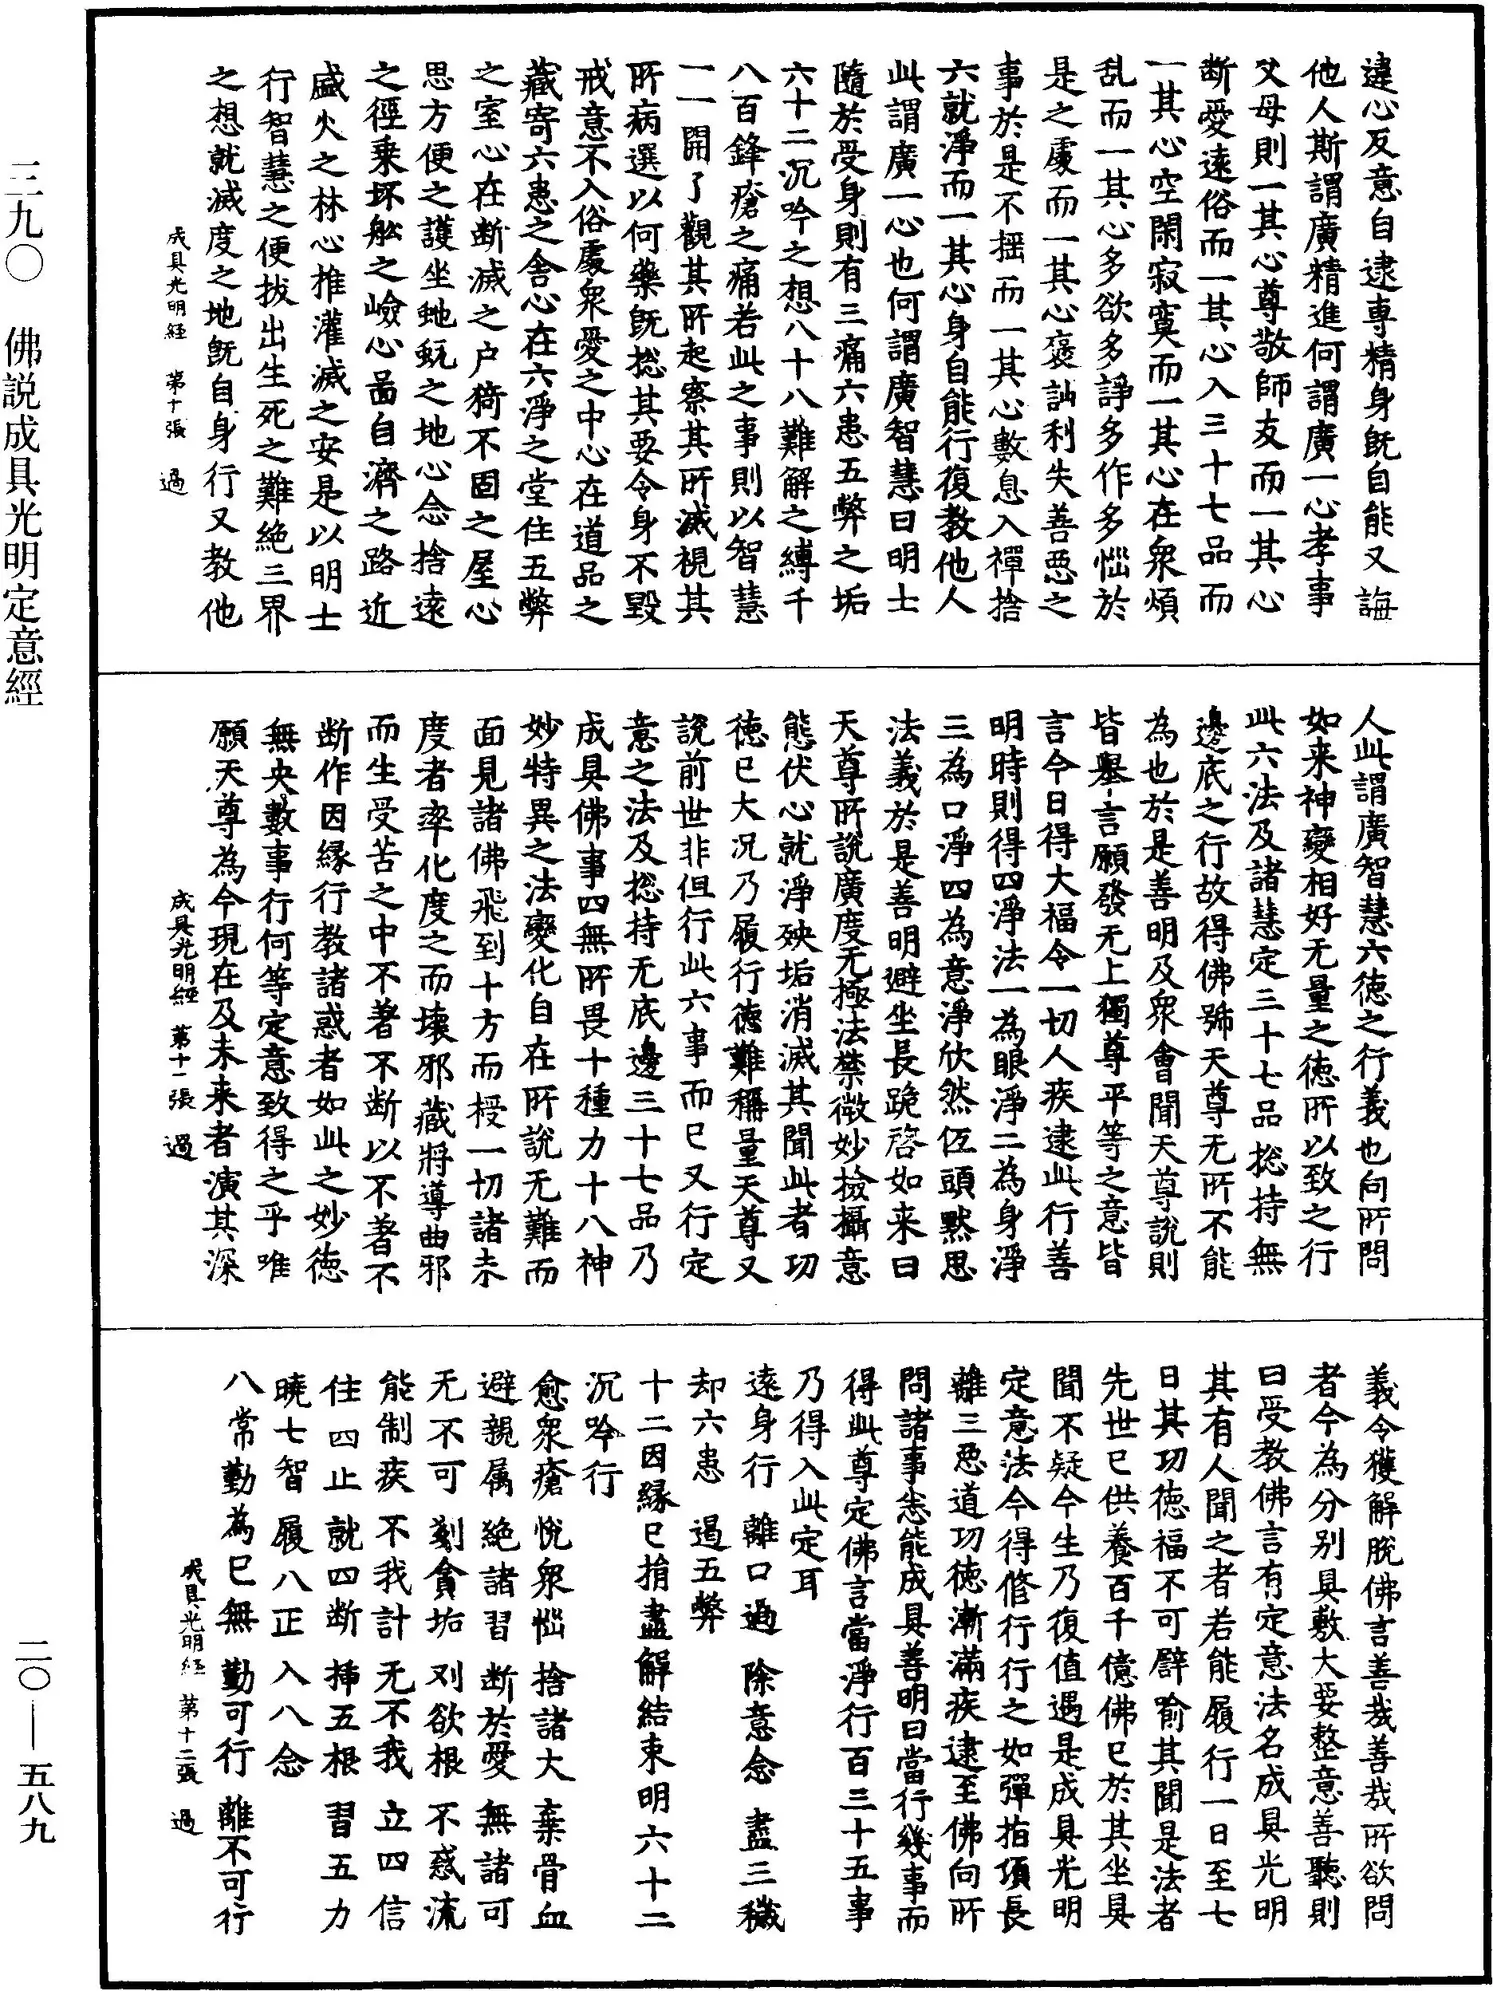 違心反意自逮專精身旣自能又誨
他人斯謂廣精進何謂廣一心孝事
父母則一其心尊敬師友而一其心
断愛遠俗而一其心入三十七品而
一其心空閑寂寞而一其心在衆煩
乱而一其心多欲多諍多作多惱於
是之處而一其心褒訕利失善惡之
事於是不揺而一其心數息入禪捨
六就淨而一其心身自能行復教他人
此謂廣一心也何謂廣智慧曰明士
隨於受身則有三痛六患五弊之垢
六十二沉吟之想八十八難解之縛千
八百鋒瘡之痛若此之事則以智慧
一一開了觀其所起察其所滅視其
所病選以何藥旣捴其要令身不毀
戒意不入俗處衆愛之中心在道品之
藏寄六患之舍心在六淨之堂住五弊
之室心在断滅之户猗不固之屋心
思方便之護坐虵蚖之地心念捨遠
之徑乗坏舩之嶮心啚自濟之路近
盛火之林心推灌滅之安是以明士
行智慧之便拔出生死之難絶三界
之想就滅度之地旣自身行又教他
成具光明経　第十張　過
人此謂廣智慧六德之行義也向所問
如来神變相好无量之徳所以致之行
此六法及諸慧定三十七品捴持無
邊底之行故得佛號天尊无所不能
為也於是善明及衆會聞天尊說則
皆舉言願發无上獨尊平等之意皆
言今日得大福令一切人疾逮此行善
明時則得四淨法一為眼淨二為身淨
三為口淨四為意淨欣然伍頭黙思
法義於是善明避坐長跪啓如来曰
天尊所說廣度无極法禁微妙撿攝意
態伏心就淨殃垢消滅其聞此者功
徳已大况乃履行徳難稱量天尊又
說前世非但行此六事而已又行定
意之法及捴持无底邊三十七品乃
成具佛事四無所畏十種力十八神
妙特異之法變化自在所說无難而
面見諸佛飛到十方而授一切諸未
度者率化度之而壊邪藏將導曲邪
而生受苦之中不著不断以不著不
断作因縁行教諸惑者如此之妙徳
無央數事行何等定意致得之乎唯
願天尊為今現在及未来者演其深
成具光明経　第十一張　過
義令獲解脫佛言善哉善哉所欲問
者今為分别具敷大要整意善聽則
曰受教佛言有定意法名成具光明
其有人聞之者若能履行一日至七
日其功徳福不可譬喻其聞是法者
先世已供養百千億佛已於其坐具
聞不疑今生乃復值遇是成具光明
定意法今得修行行之如彈指頃長
離三惡道功徳漸滿疾逮至佛向所
問諸事悉能成具善明曰當行幾事而
得此尊定佛言當淨行百三十五事
乃得入此定耳
遠身行　離口過　除意念　盡三穢
却六患　過五弊
十二因縁已捐盡解結束明六十二
沉吟行
愈衆瘡　悅衆惱　捨諸大　棄骨血
避親属　絶諸習　断於愛　無諸可
无不可　刻貪垢　刈欲根　不惑流
能制疾　不我計　无不我　立四信
住四止　就四断　揷五根　習五力
曉七智　履八正　入八念
八常勤為已無　勤可行　離不可行
成具光明経　第十二張　過
三九〇　佛説成具光明定意經
二〇——五八九